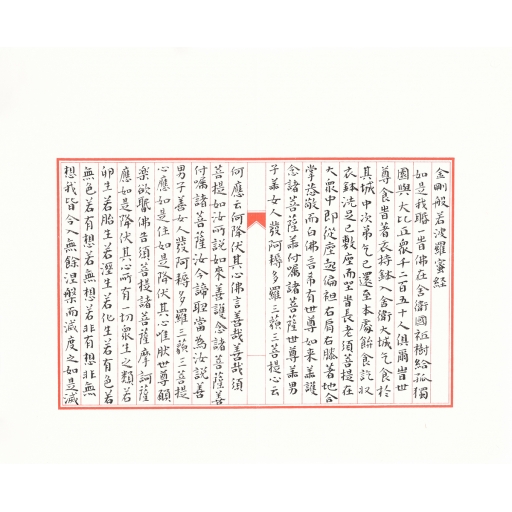 金剛般若波羅蜜經
如是我聞一時佛在舍衛國祇樹給孤獨
園與大比丘眾千二百五十人俱爾時世
尊食時著衣持鉢入舍衛大城乞食於
其城中次第乞已還至本處飯食訖收
衣鉢洗足已敷座而坐時長老須菩提在
大眾中即從座起偏袒右肩右膝著地合
掌恭敬而白佛言希有世尊如來善護
念諸菩薩善付囑諸菩薩世尊善男
子善女人發阿耨多羅三藐三菩提心云
何應云何降伏其心佛言善哉善哉須
菩提如汝所說如來善護念諸菩薩善
付囑諸菩薩汝今諦聽當為汝說善
男子善女人發阿耨多羅三藐三菩提
心應如是住如是降伏其心唯然世尊願
樂欲聞佛告須菩提諸菩薩摩訶薩
應如是降伏其心所有一切眾生之類若
卵生若胎生若濕生若化生若有色若
無色若有想若無想若非有想非無
想我皆令入無餘涅槃而滅度之如是滅